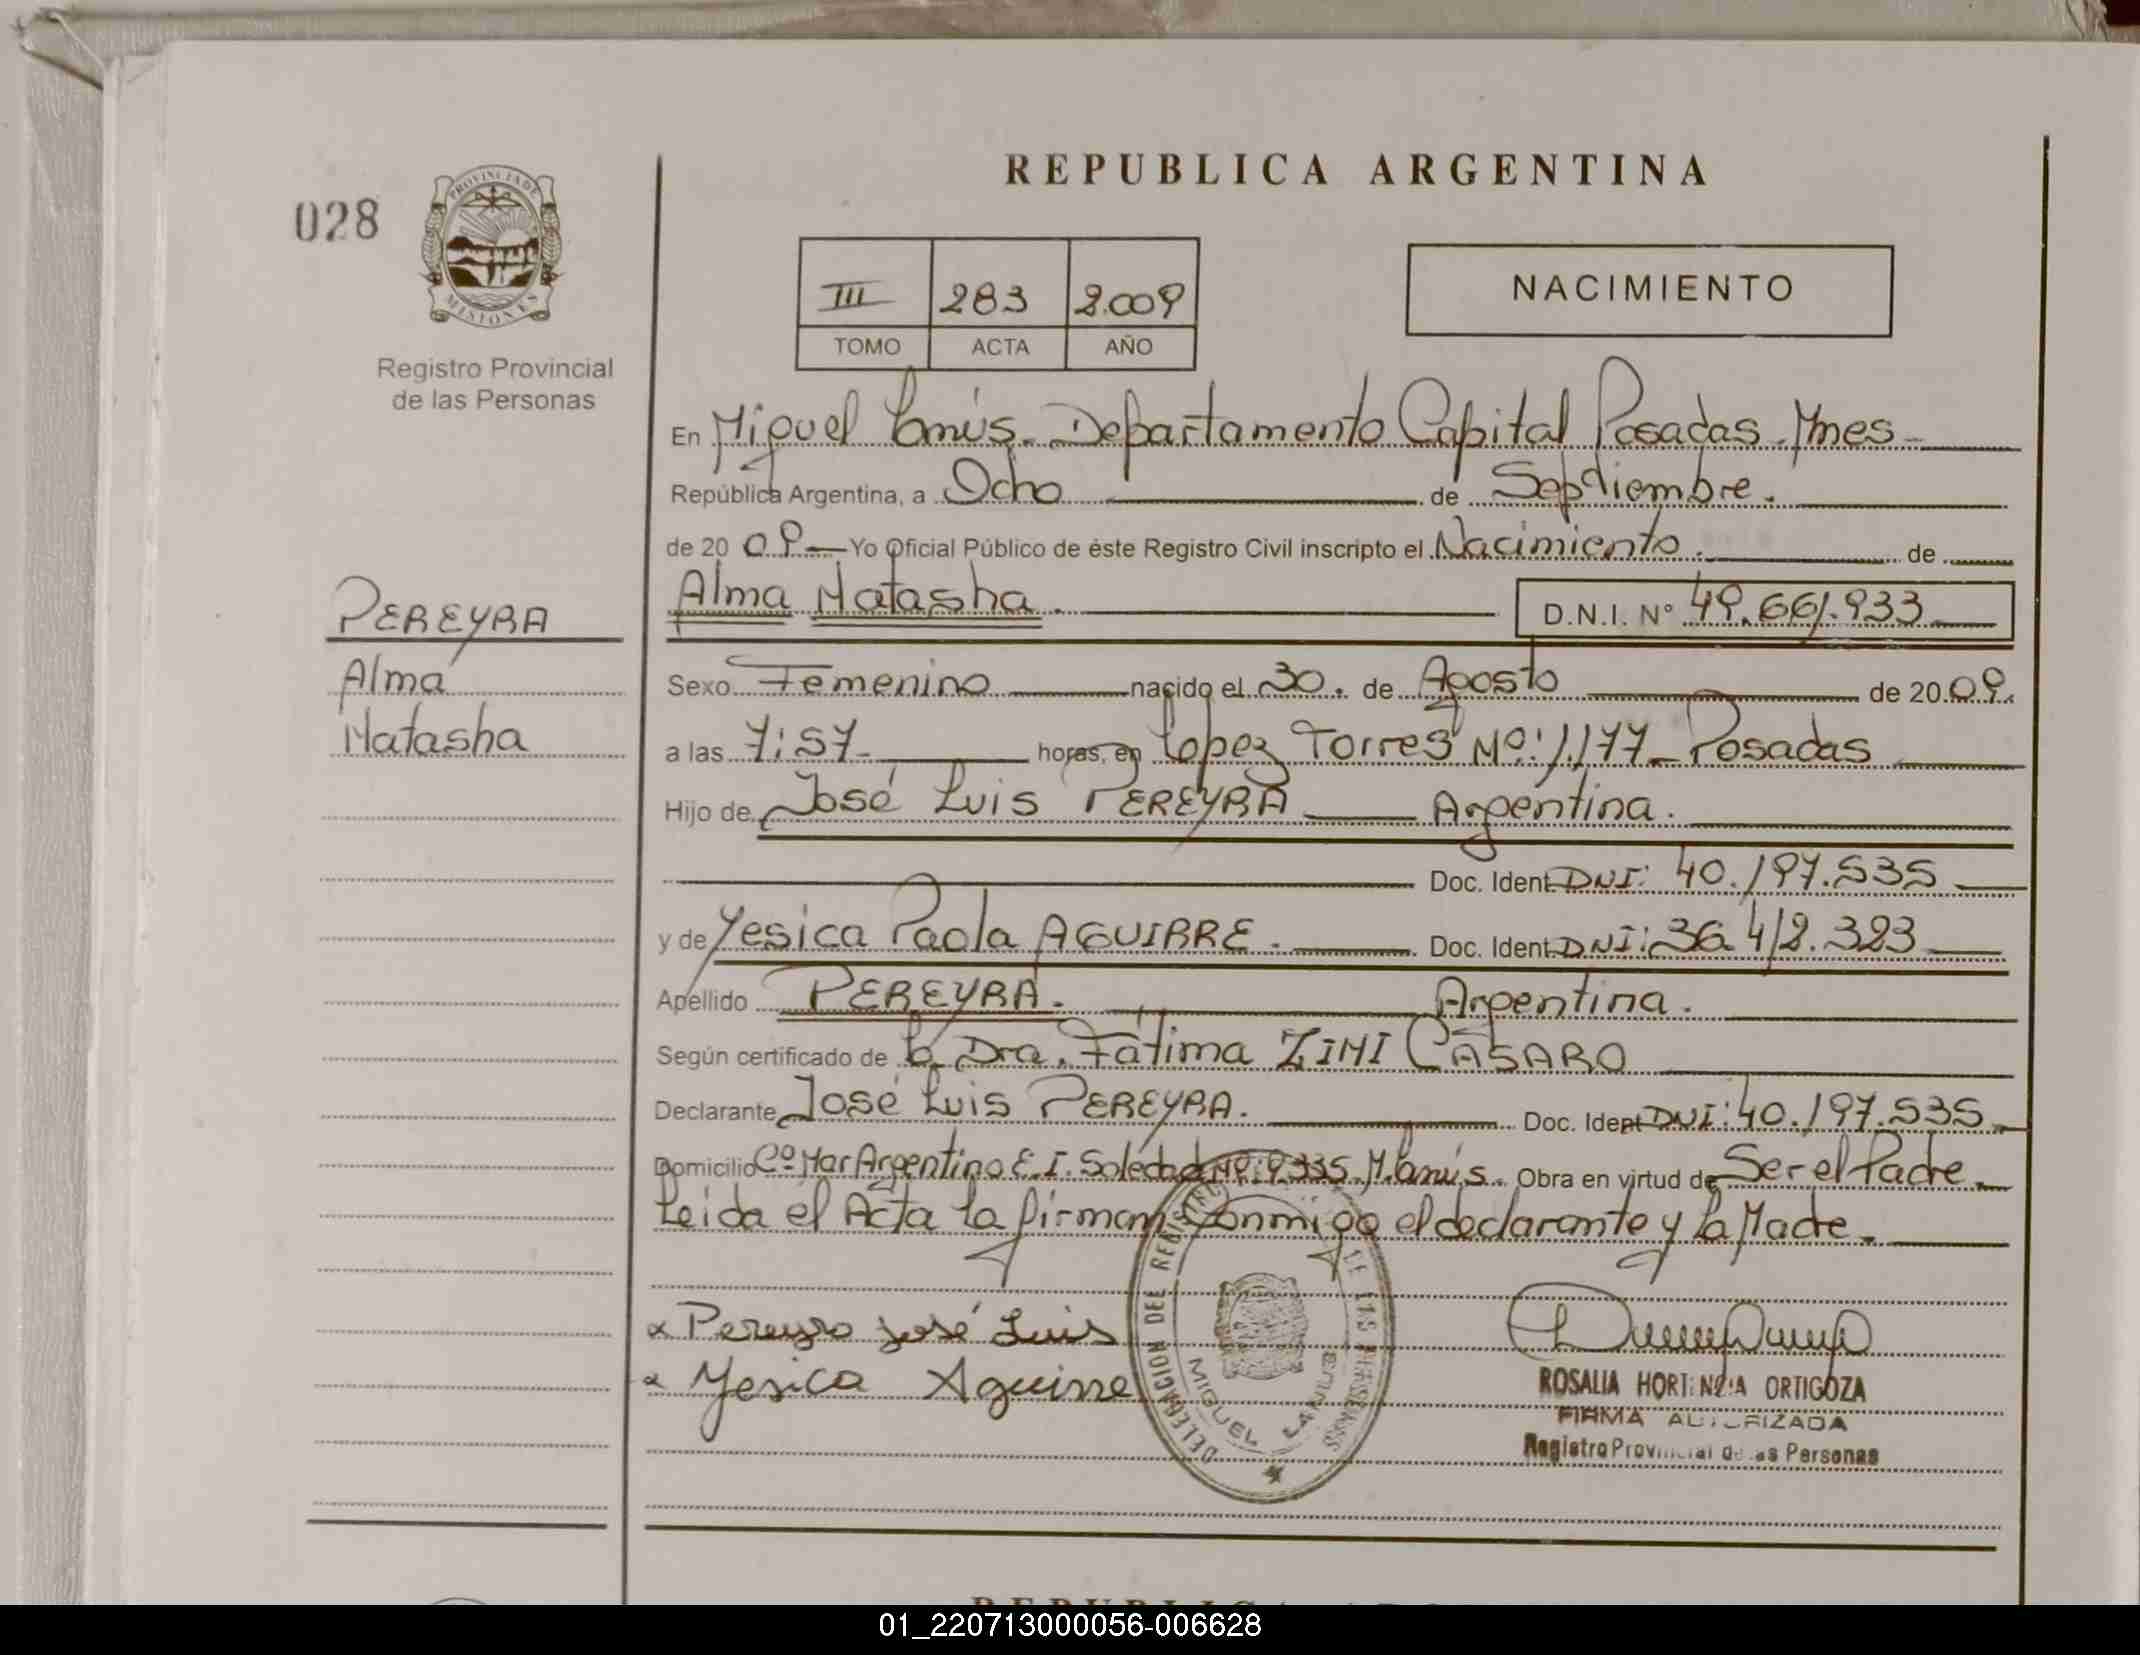 REPUBLICA ARGENTINA
028
PROVINCIA DE
MISIONES
Registro Provincial
de las Personas
III 283 2.009
TOMO ACTA AÑO
NACIMIENTO
En Miguel Lanús. Departamento Capital Posadas. Mnes
República Argentina, a Ocho de Septiembre.
de 20 09 Yo Oficial Público de éste Registro Civil inscripto el Nacimiento. de
Alma Natasha. D.N.I. Nº 49.661.933
PEREYRA
Alma
Natasha
Sexo Femenino nacido el 30. de Agosto de 20 09.
a las 7:57 horas, en Lopez Torres Nº: 1.177 - Posadas
Hijo de José Luis PEREYRA Argentina.
Doc. Ident DNI: 40.197.535
y de Yesica Paola AGUIRRE. Doc. Ident DNI: 36.412.323
Apellido PEREYRA. Argentina.
Según certificado de la Dra. Fátima ZINI CASARO
Declarante José Luis PEREYRA. Doc. Ident DNI: 40.197.535
Domicilio Cº Mar Argentino E. I. Soledad Nº: 9335 M. Lanús. Obra en virtud de Ser el Padre.
Leida el Acta la firman conmigo el declarante y la Madre.
x Pereyra José Luis
x Yesica Aguirre
DELEGACION DEL REGISTRO DE LAS PERSONAS
MIGUEL LANUS
ROSALIA HORTENCIA ORTIGOZA
FIRMA AUTORIZADA
Registro Provincial de las Personas
REPUBLICA
01_220713000056-006628